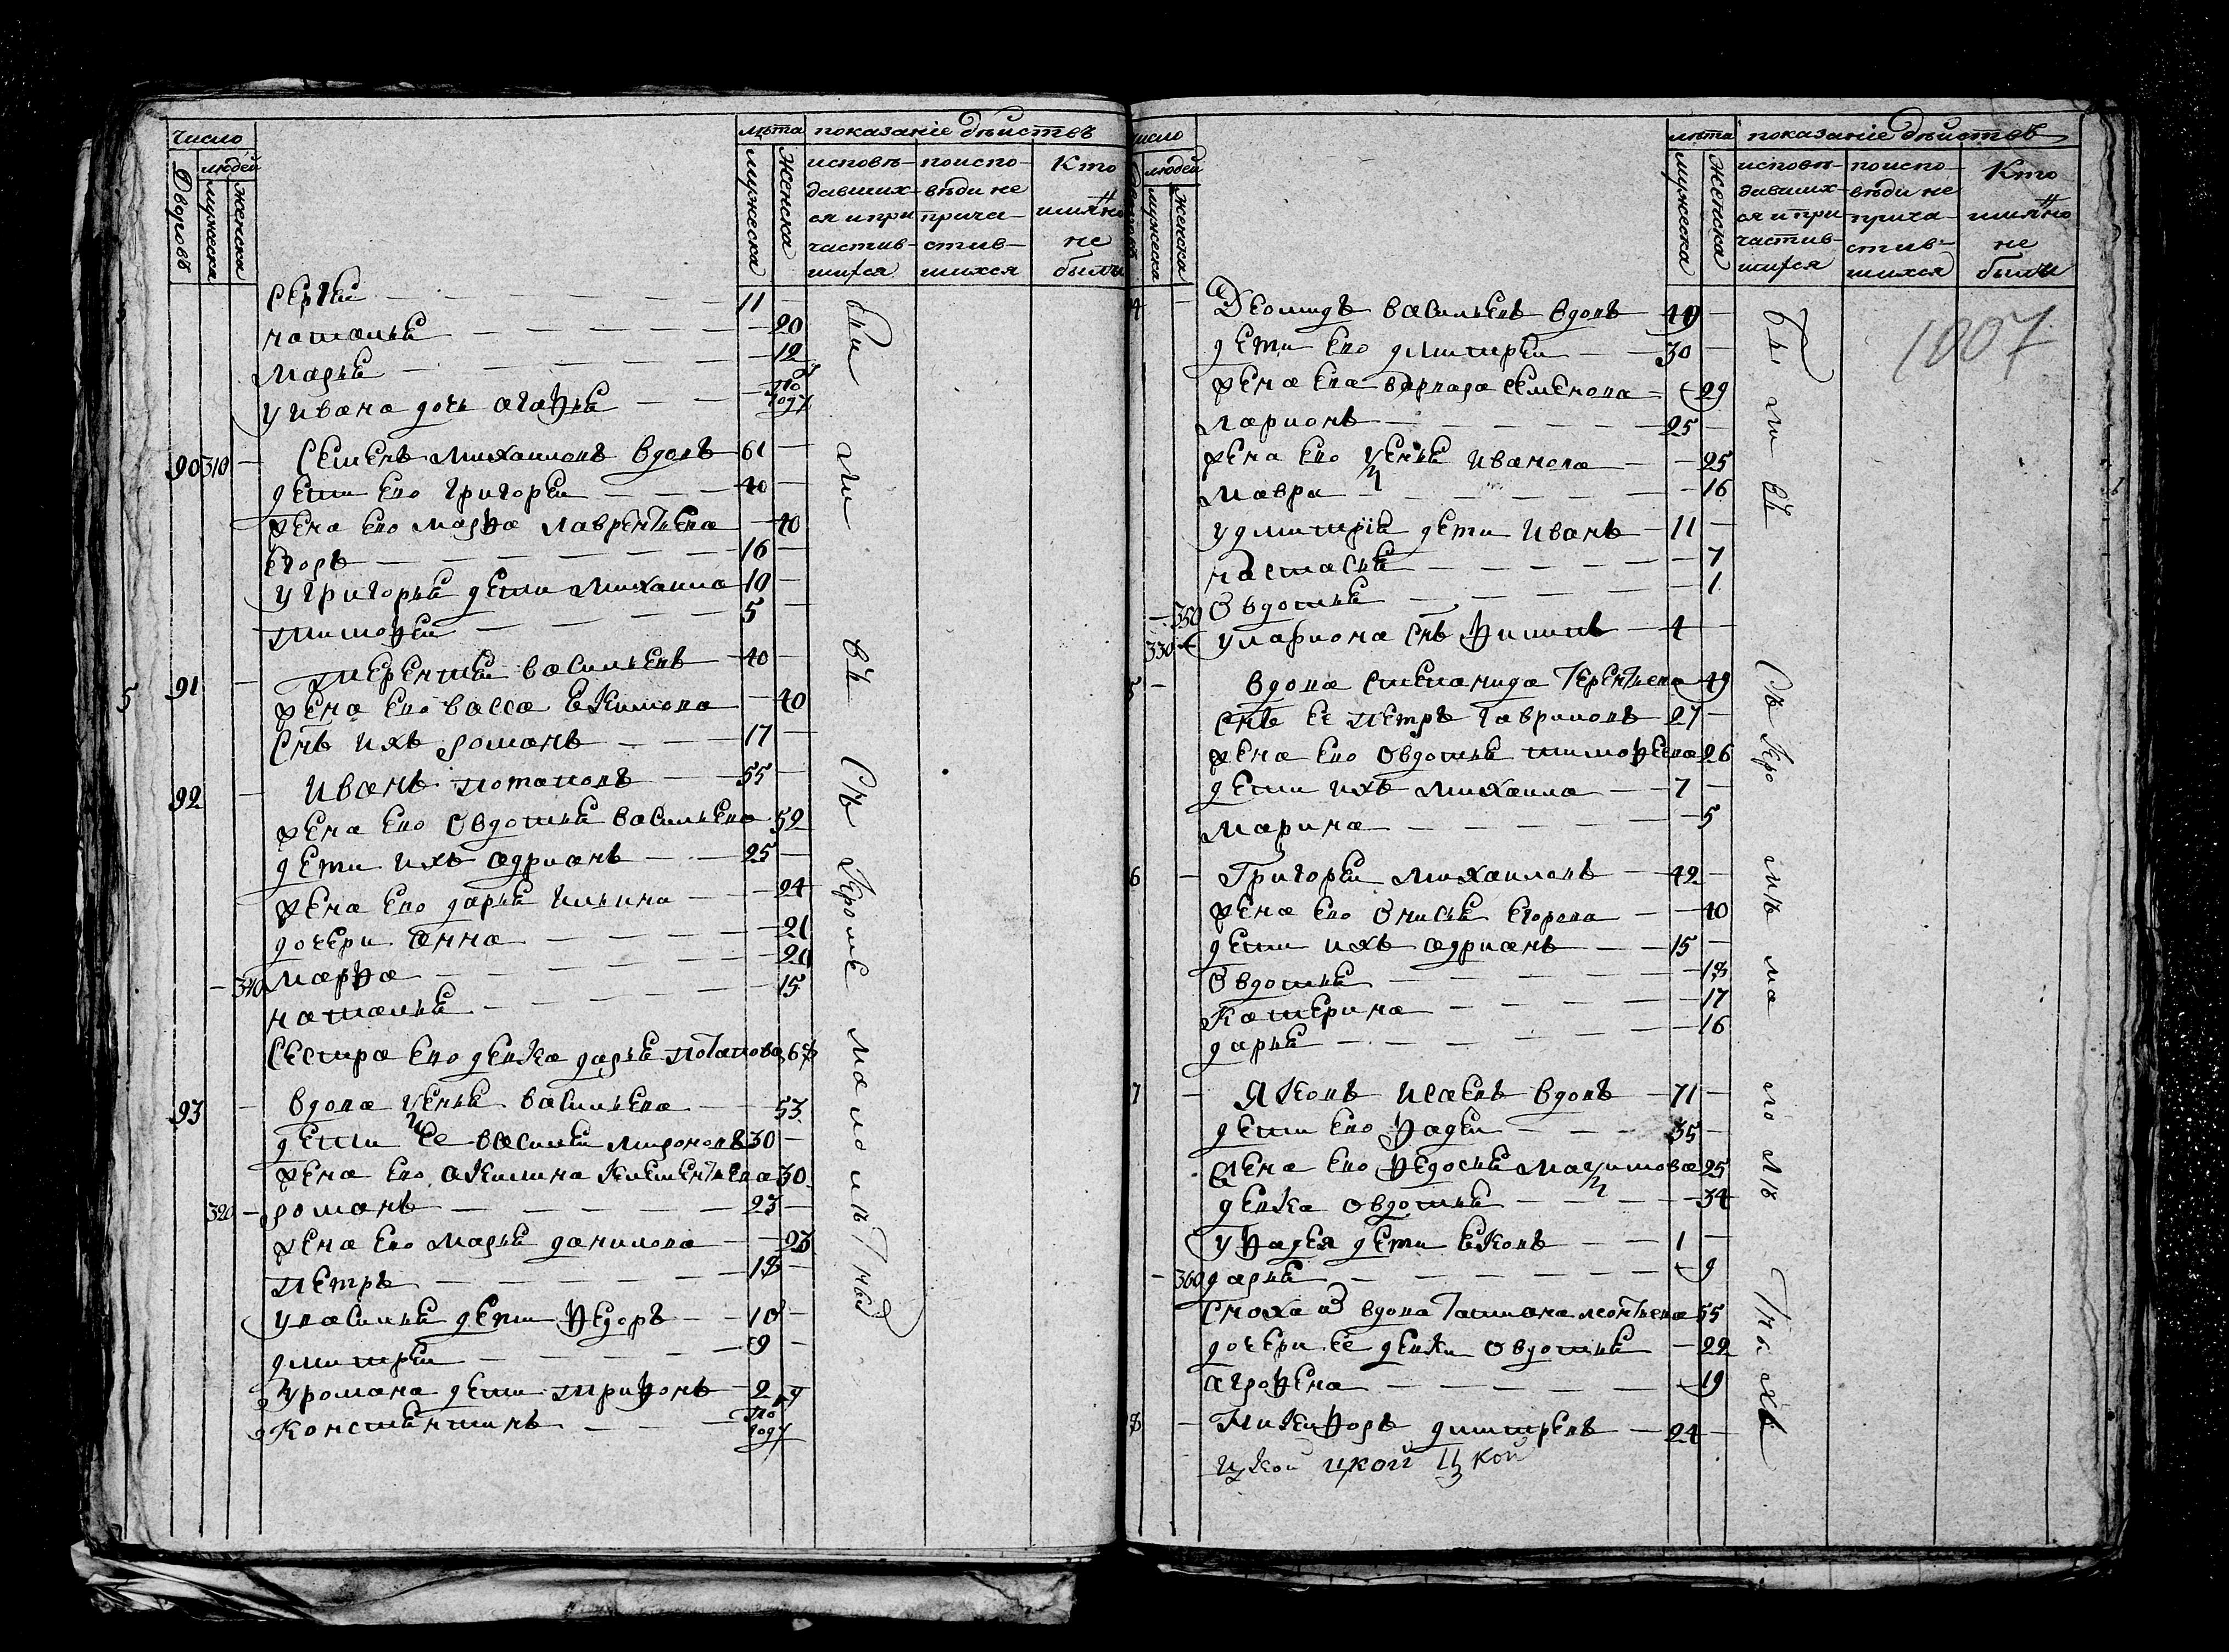 число
лѣта показаніе дѣиствъ
Дворовъ
людей
мужеска
женска
мужеска
женска
исповѣ-
давших-
ся и при
частив-
шихся
поиспо-
вѣди не
прича-
стив-
шихся
Кто
имянно
не
были
Сергѣи 11
наталья 20
Марья 12
у ивана дочь агафья по году
90 310 Семенъ михаиловъ вдовъ 61
дети ево григореи 40
жена ево марфа лаврентьева 40
егоръ 16
у григорья дети михаила 10
тимофеи 5
5 91 терентеи васильевъ 40
жена ево васса екимова 40
Снъ ихъ романъ 17
92 иванъ потаповъ 55
жена ево Овдотья васильева 52
дети ихъ адриянъ 25
жена ево дарья ильина 24
дочери анна 21
340 марфа 20
наталья 15
Сестра ево девка дарья потапова 68
93 вдова ценья васильева 53
дети ее василеи мироновъ 30
жена ево акилина климентьева 30
320 романъ 23
жена ево марья данилова 23
петръ 18
у василья дети федоръ 10
дмитреи 9
у романа дети трифонъ 2
Констянтинъ по году
бы ли въ Съ Кроме малолѣтны
число
лѣта показаніе дѣиствъ
людей
мужеска
женска
мужеска
женска
исповѣ-
давших-
ся и при
частив-
шихся
поиспо-
вѣди не
прича-
стив-
шихся
Кто
имянно
не
были
1007
4 Деомидъ васильевъ вдовъ 49
дети ево дмитреи 30
жена ева варвара семенова 29
ларионъ 25
жена ево ценья иванова 25
мавра 16
у дмитрія дети иванъ 11
настасья 7
350 Овдотья 1
330 у лариона Снъ филипъ 4
5 вдова степанида терентьева 49
Снъ ее петръ гавриловъ 27
жена ево овдотья тимофеева 26
дети ихъ михаила 7
марина 5
6 Григореи михаиловъ 42
жена ево Онисья егорова 40
дети ихъ адриянъ 15
Овдотья 18
Катерина 17
дарья 16
7 Яковъ исаевъ вдовъ 71
дети ево фадеи 35
жена ево федосья мацимова 25
девка овдотья 34
у фадея дети яковъ 1
360 дарья 9
Сноха вдова татиана леонтьева 55
дочери ее девки овдотья 22
агрофена 19
8 Никифоръ димитревъ 24
цкой цкой цкой
бы ли въ Съ Кро мѣ ма ло лѣ тныхъ